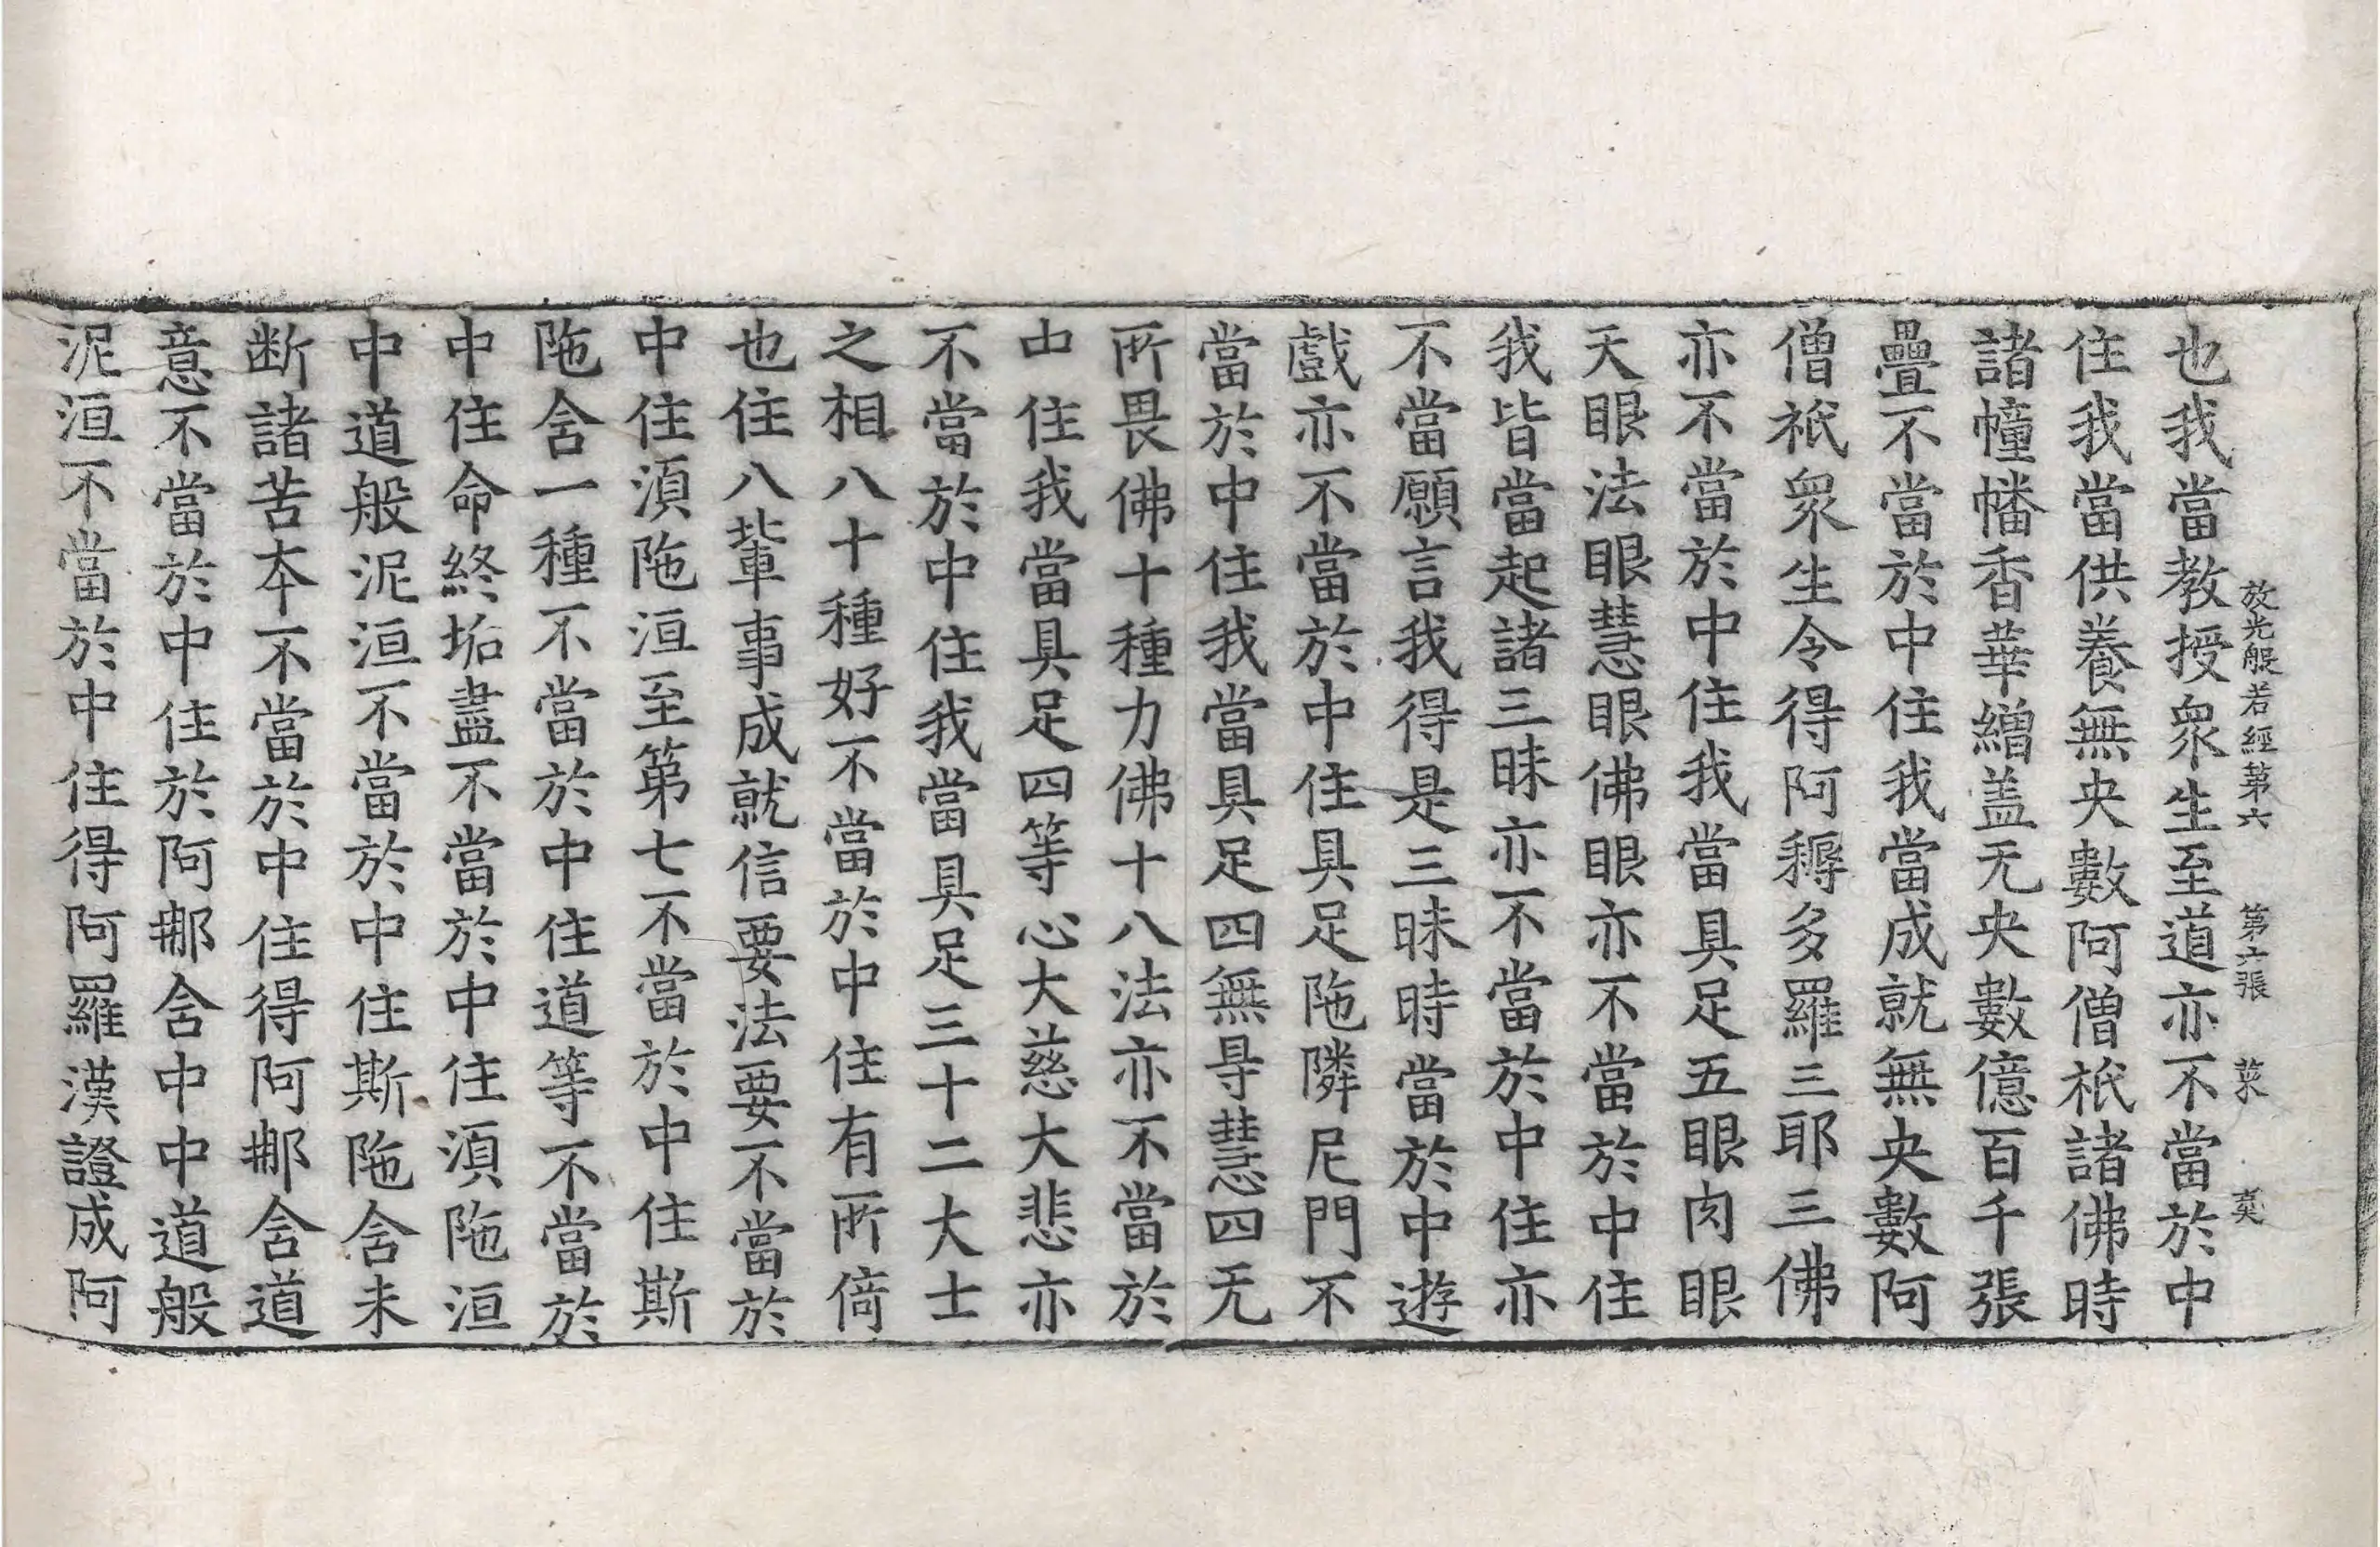 放光般若經第六 第六張 菜
也我當教授衆生至道亦不當於中
住我當供養無央數阿僧祇諸佛時
諸幢幡香華繒盖无央數億百千張
疊不當於中住我當成就無央數阿
僧祇衆生令得阿耨多羅三耶三佛
亦不當於中住我當具足五眼肉眼
天眼法眼慧眼佛眼亦不當於中住
我皆當起諸三昧亦不當於中住亦
不當願言我得是三昧時當於中遊
戲亦不當於中住具足陁隣尼門不
當於中住我當具足四無㝵慧四无
所畏佛十種力佛十八法亦不當於
中住我當具足四等心大慈大悲亦
不當於中住我當具足三十二大士
之相八十種好不當於中住有所倚
也住八輩事成就信要法要不當於
中住湏陁洹至第七不當於中住斯
陁含一種不當於中住道等不當於
中住命終垢盡不當於中住湏陁洹
中道般泥洹不當於中住斯陁含未
断諸苦夲不當於中住得阿那含道
意不當於中住於阿那含中中道般
泥洹不當於中住得阿羅漢證成阿